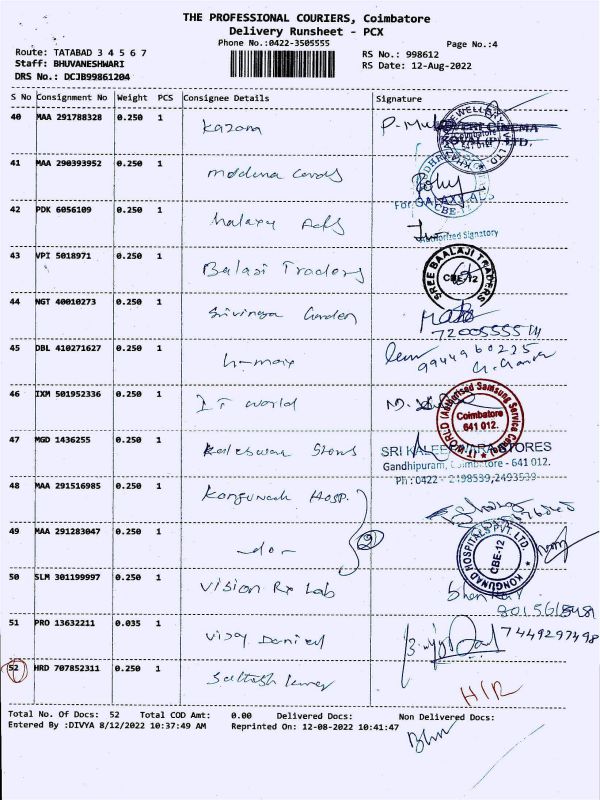 THE PROFESSIONAL COURIERS, Coimbatore
Delivery Runsheet - PCX
Phone No.:0422-3505555
Page No.:4
Route: TATABAD 3 4 5 6 7
Staff: BHUVANESHWARI
DRS No.: DCJB99861204
RS No.: 998612
RS Date: 12-Aug-2022
S No Consignment No Weight PCS Consignee Details Signature
40 MAA 291788328 0.250 1 Kazana
41 MAA 290393952 0.250 1
42 PDK 6056109 0.250 1 Ads
For GALAXY ADS
Authorized Signatory
43 VPI 5018971 0.250 1 Balaji Traders
SREE BAALAJI TRADERS
CBE-12
44 NGT 40010273 0.250 1 Garden
45 DBL 410271627 0.250 1
9944960225
46 IXM 501952336 0.250 1 IT world
IT WORLD (Authorised Samsung Service Center)
Coimbatore
641 012.
47 MGD 1436255 0.250 1 Stores
STORES
Gandhipuram, Coimbatore - 641 012.
Ph : 0422 - 2498539,2493539
48 MAA 291516985 0.250 1 Hosp.
49 MAA 291283047 0.250 1 -do-
2
KONGUNAD HOSPITALS PVT. LTD.
CBE-12
50 SLM 301199997 0.250 1 Vision Rx Lab
51 PRO 13632211 0.035 1 Vijay
7449297498
52 HRD 707852311 0.250 1
Total No. Of Docs: 52 Total COD Amt: 0.00 Delivered Docs: Non Delivered Docs:
Entered By :DIVYA 8/12/2022 10:37:49 AM Reprinted On: 12-08-2022 10:41:47